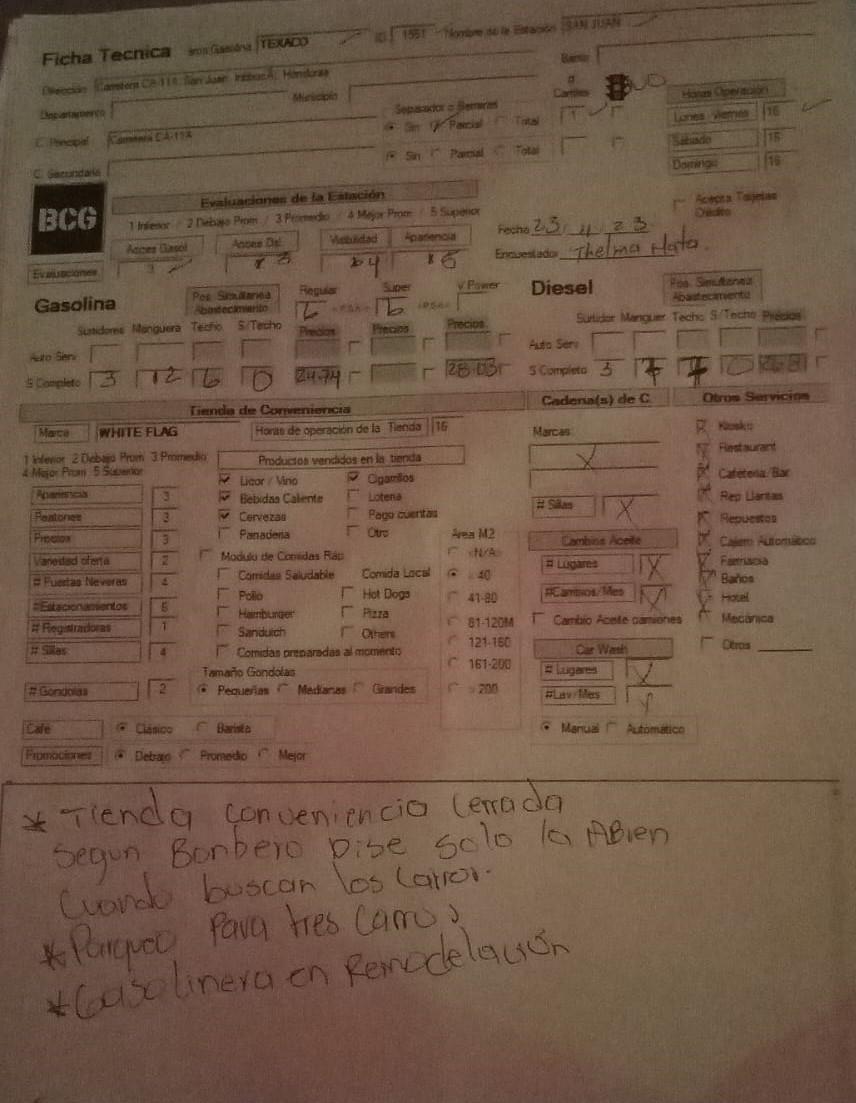 Ficha Tecnica Gasolina TEXACO ID 1551 Nombre de la Estación SAN JUAN
Dirección Carretera CA-11A, San Juan, Intibucá, Honduras Barrio
Departamento Municipio Separador o Barreras # Carriles NO Horas Operación
C. Principal Carretera CA-11A Sin Parcial Total 1 Lunes Viernes 16
C. Secundaria Sin Parcial Total Sabado 16
Domingo 16
BCG Evaluaciones de la Estación Acepta Tarjetas Crédito
1 Inferior / 2 Debajo Prom / 3 Promedio / 4 Mejor Prom / 5 Superior
Acceso Gasol Acceso Dsl Visibilidad Apariencia Fecha 23/4/23
Evaluaciones 3 3 4 Encuestador Thelma
Gasolina Pos Simultanea Abastecimiento Regular 6 Super 6 V Power Diesel Pos Simultanea Abastecimiento
Surtidores Manguera Techo S/Techo Precios Precios Precios Surtidor Manguer Techo S/Techo Precios
Auto Serv Auto Serv
S Completo 3 12 6 0 24.74 28.03 S Completo 3
Tienda de Conveniencia Cadena(s) de C. Otros Servicios
Marca WHITE FLAG Horas de operación de la Tienda 16 Marcas: Kiosko
1 Inferior 2 Debajo Prom 3 Promedio Productos vendidos en la tienda X Restaurant
4 Mejor Prom 5 Superior Licor / Vino Cigarrillos Cafeteria/Bar
Apariencia 3 Bebidas Caliente Loteria # Sillas X Rep Llantas
Peatones 3 Cervezas Pago cuentas Repuestos
Precios 3 Panaderia Otro Area M2 Cambios Aceite Cajero Automático
Variedad oferta 2 Modulo de Comidas Rap <N/A> # Lugares X Farmacia
# Puertas Neveras 4 Comidas Saludable Comida Local 40 #Cambios/Mes X Baños
#Estacionamientos 6 Pollo Hot Dogs 41-80 Hotel
# Registradoras 1 Hamburger Pizza 81-120M Cambio Aceite camiones Mecánica
# Sillas 4 Sanduich Others 121-160 Car Wash Otros
Comidas preparadas al momento 161-200 # Lugares X
Tamaño Gondolas
# Gondolas 2 Pequeñas Medianas Grandes 200 #Lav/Mes X
Café Clásico Barista Manual Automático
Promociones Debajo Promedio Mejor
* Tienda conveniencia Cerrada
Segun Bonbero Dise solo la ABren
Cuando buscan los Carros.
* Parqueo Para tres Carros
* Gasolinera en Remodelación